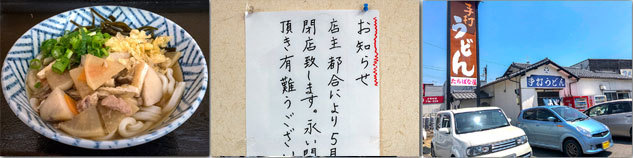 お知らせ
店主都合により5月
閉店致します。永い間
頂き有難うござい
手打
うどん
たちばな屋
手打うどん